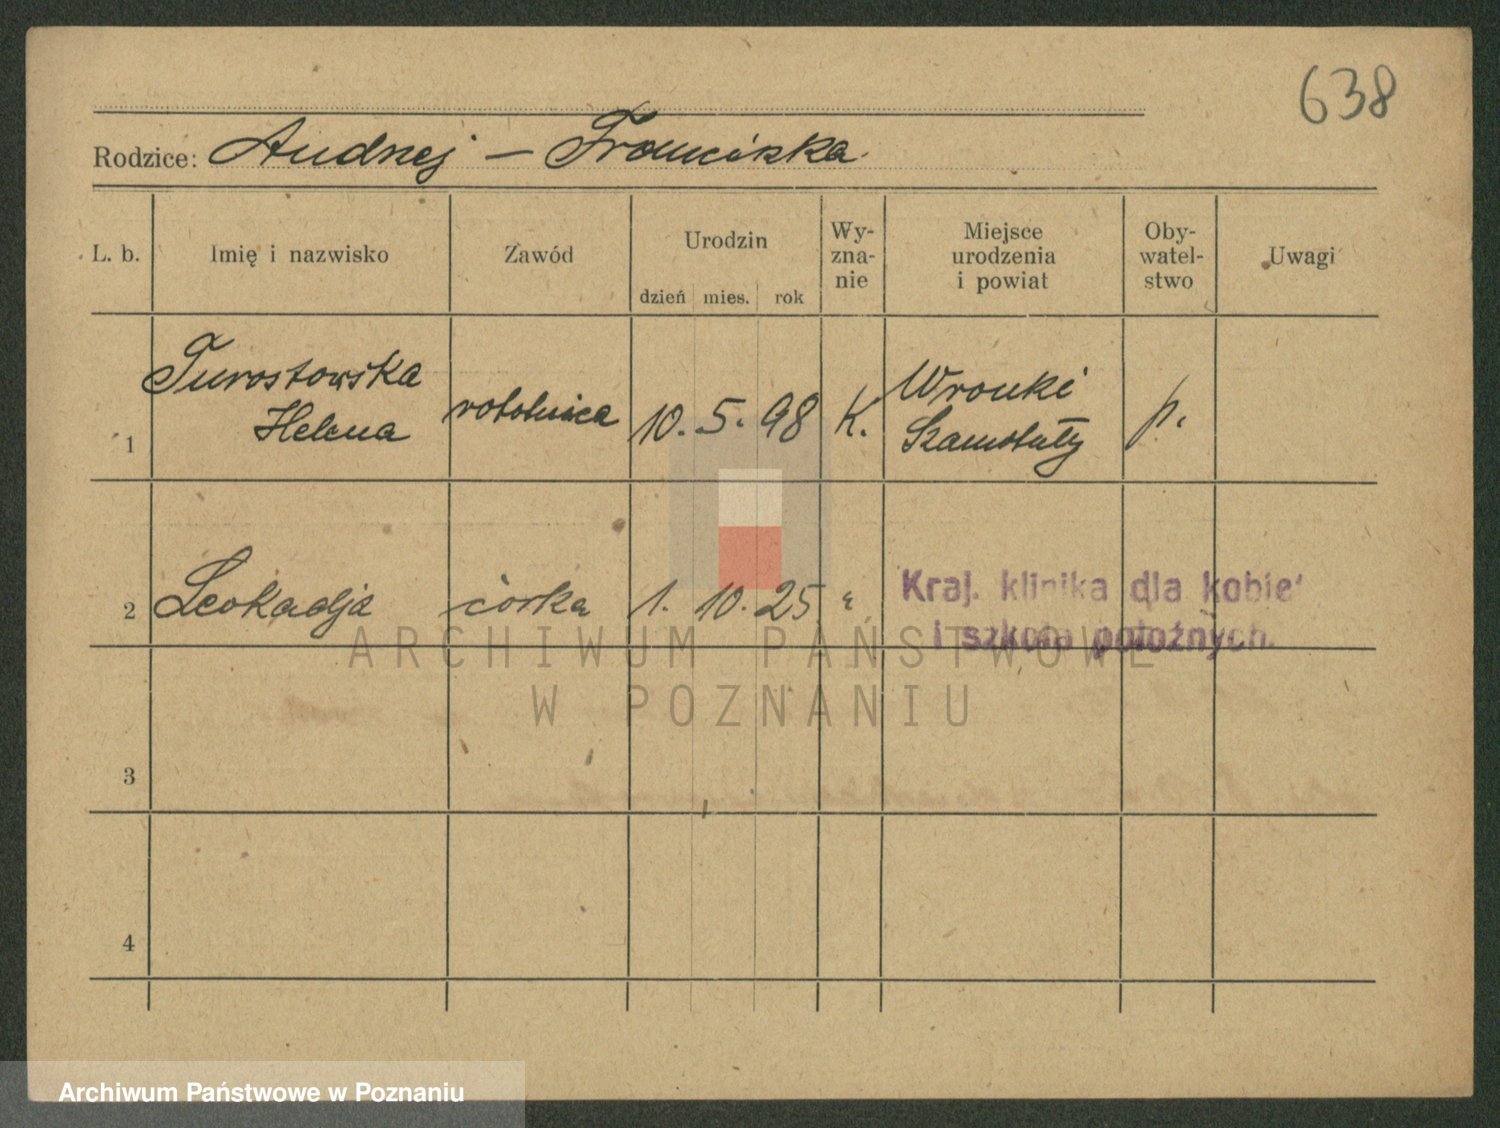 638
Rodzice: Andrzej — Franciszka.
L. b. Imię i nazwisko Zawód Urodzin Wy- Miejsce Oby- Uwagi
zna- urodzenia watel-
dzień mies. rok nie i powiat stwo
Turostowska
Helena
1 robotnica 10. 5. 98 K. Wronki p.
Szamotuły
2 Leokadja córka 1. 10. 25 "
Kraj. klinika dla kobie
i szkoła położnych.
3
4
ARCHIWUM PAŃSTWOWE
W POZNANIU
Archiwum Państwowe w Poznaniu